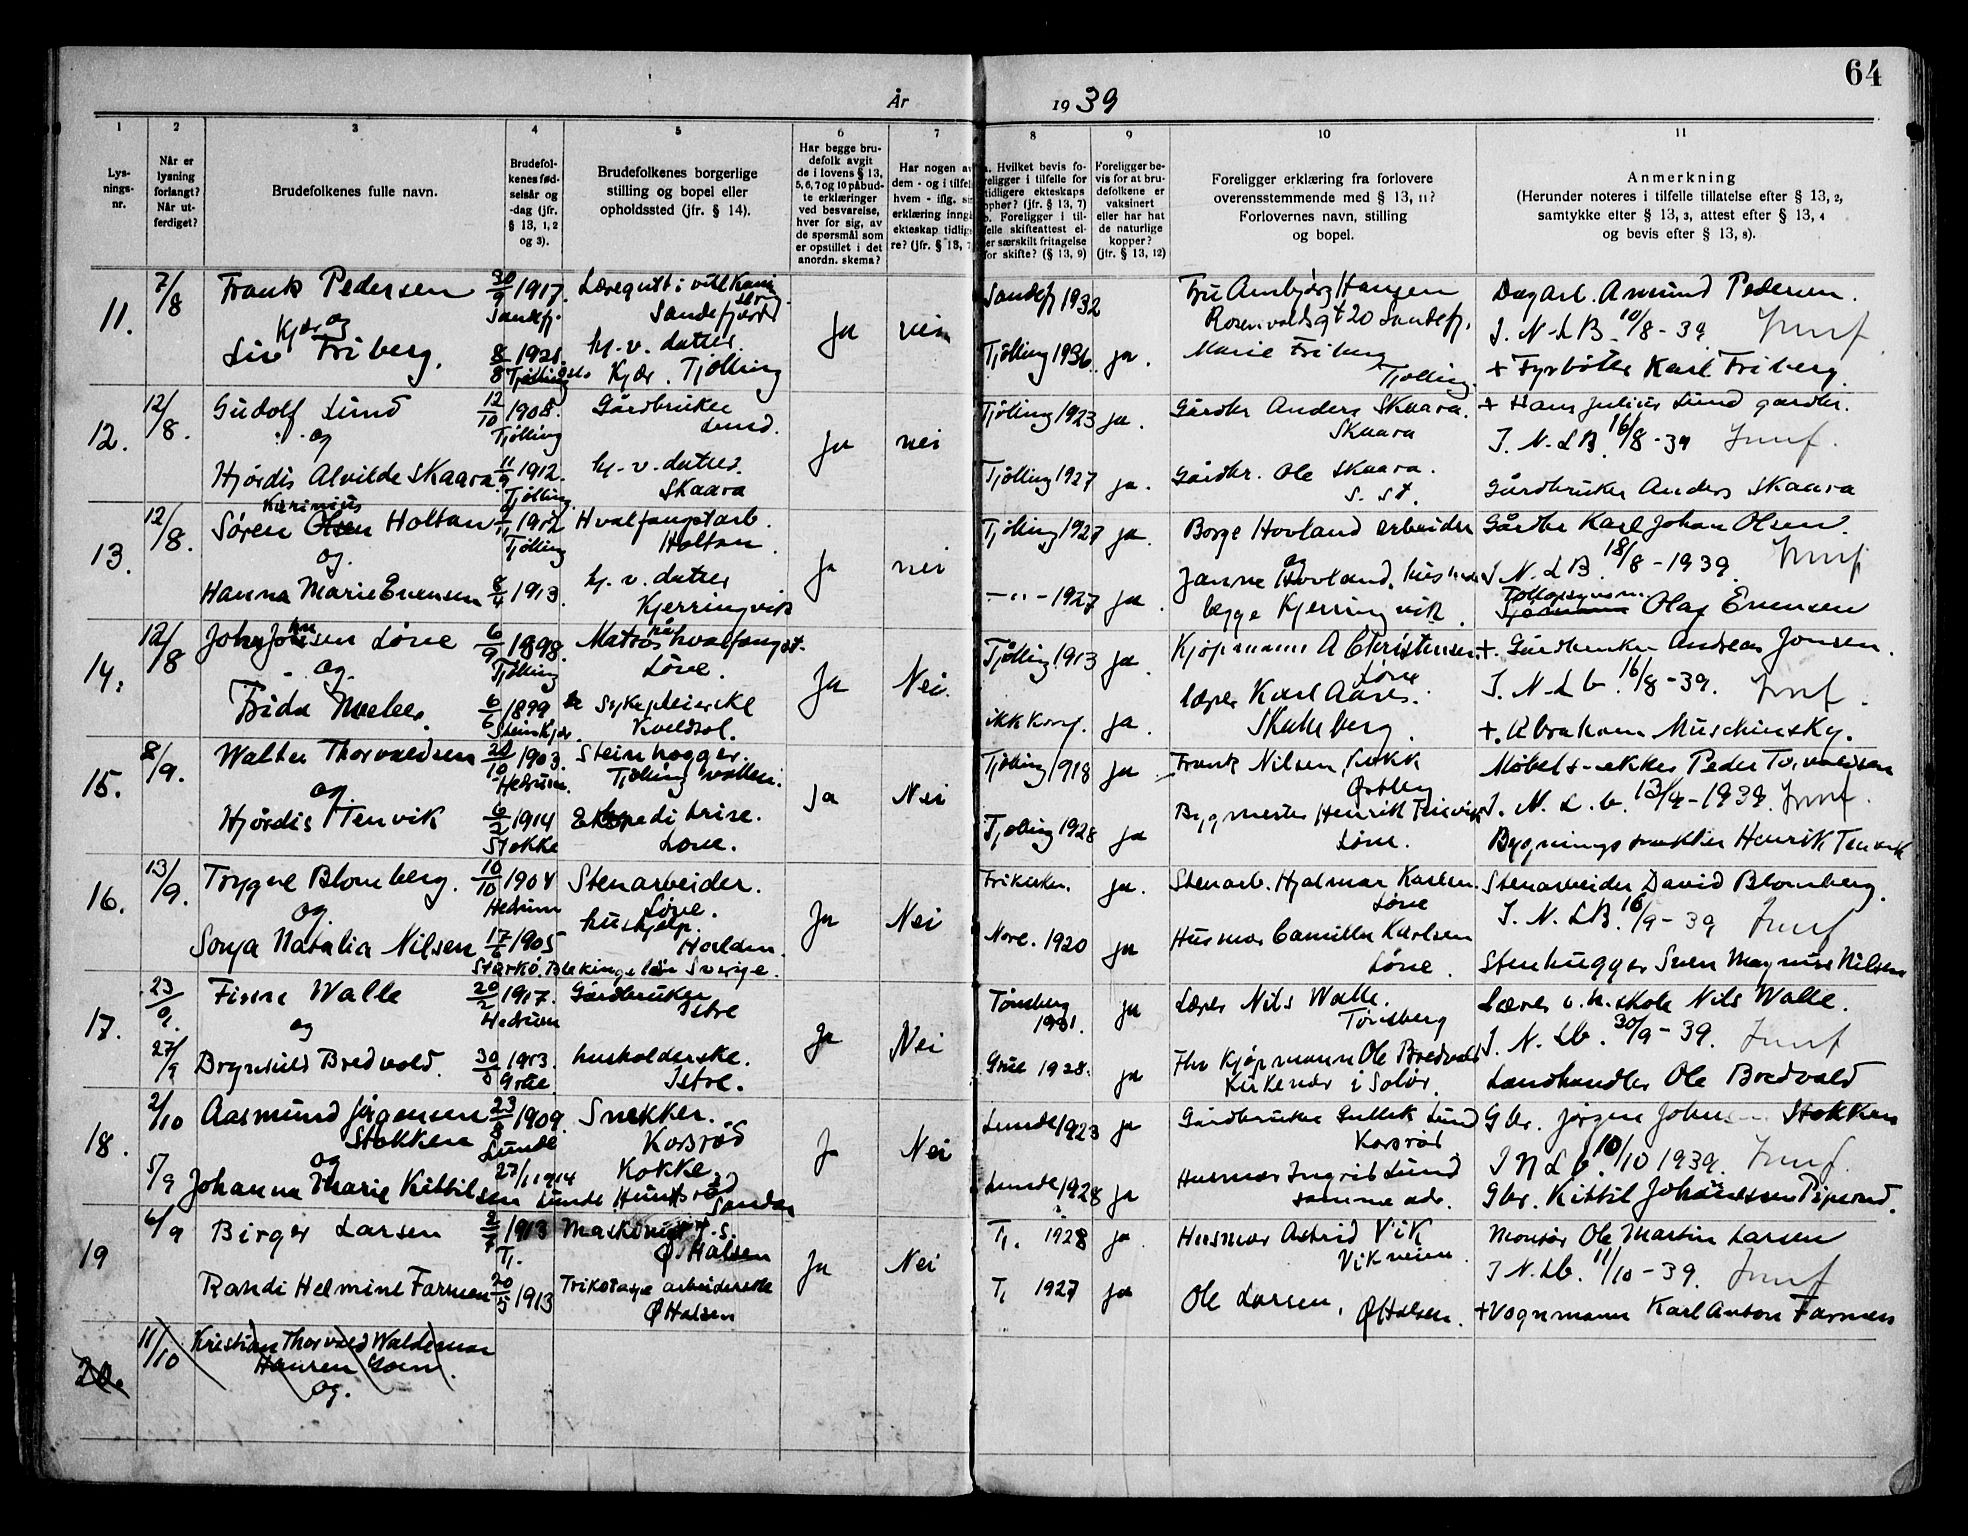 64
År 1939
1 2 3 4 5 6 7 8 9 10 11
Lys-
nings-
nr.
Når er
lysning
forlangt?
Når ut-
ferdiget?
Brudefolkenes fulle navn.
Brudefol-
kenes fød-
selsår og
-dag (jfr.
§ 13, 1, 2
og 3).
Brudefolkenes borgerlige
stilling og bopel eller
opholdssted (jfr. § 14).
Har begge bru-
defolk avgit
de i lovens § 13,
5, 6, 7 og 10 påbud-
te erklæringer
ved besvarelse,
hver for sig, av
de spørsmål som
er opstillet i det
anordn. skema?
Har nogen av
dem - og i tilfel
hvem - iflg. si
erklæring inngå
ekteskap tidlige
re? (jfr. § 13, 7
a. Hvilket bevis fo-
religger i tilfelle for
tidligere ekteskaps
ophør? (jfr. § 13, 7)
b. Foreligger i til-
felle skifteattest el-
ler særskilt fritagelse
for skifte? (§ 13, 9)
Foreligger be-
vis for at bru-
defolkene er
vaksinert
eller har hat
de naturlige
kopper?
(jfr. § 13, 12)
Foreligger erklæring fra forlovere
overensstemmende med § 13, 11?
Forlovernes navn, stilling
og bopel.
Anmerkning
(Herunder noteres i tilfelle tillatelse efter § 13, 2,
samtykke efter § 13, 3, attest efter § 13, 4
og bevis efter § 13, 8).
11. 7/8 Frank Pedersen 30/9 1917. Sandefj. Læregutt i
Sandefjord Ja nei Sandefj 1932 Fru Hansen
Rosenvoldsgt 20 Sandefj. Dagarb. Amund Pedersen.
og I. N. L B. 10/8-39
Kjær
Liv Friberg. 8/8 1921. Tjølling hj. v. datter.
Kjær. Tjølling Tjølling 1936. ja. Marie Friberg
Tjølling. + Fyrbøter Karl Friberg.
12. 12/8. Gudolf Lund 12/10 1908. Tjølling Gårdbruker
Lund. Ja nei Tjølling 1923 ja. Gårdbr Anders Skaara.
Skaara + Hans Julius Lund gardbr.
og I. N. L B. 16/8-39
Hjørdis Alvilde Skaara. 11/9 1912. Tjølling hj. v. datter.
Skaara Tjølling 1927 ja. Gårdbr. Ole Skaara.
s. st. Gårdbruker Anders Skaara
13. 12/8. Søren Olsen Holtan 1902 Tjølling Hvalfangstarb.
Holtan. Ja nei Tjølling 1927 ja. Borge Hovland arbeider Gårdbr Karl Johan Olsen.
og. og I. N. L B. 18/8-1939.
Hanna Marie Evensen 8/4 1913. hj. v. datter
Kjerringvik -"- 1927 ja. Janne Hovland,
begge Kjerringvik. Olaf Evensen
14. 12/8 Løne 6/9 1898. Tjølling Matros på hvalfangst.
Løve. Ja Nei. Tjølling 1913 ja. Kjøpmann A Christensen.
Løve +. Gårdbruker Andreas Jonsen.
og. I. N. L b. 16/8-39.
Frida 6/6 1899 Steinkjer. Sykepleierske
Kveldsol. ikke konf. ja. lærer Karl Aares.
Skalleberg. +. Abraham Muschinsky.
15. 8/9. Walter Thorvaldsen 1903. Hedrum. Steinhogger.
Tjølling Ja Nei Tjølling 1918 ja Frank Nilsen, kokk
Østby Peder
og. I. N. L. b. 13/9-1939.
Hjørdis Tenvik 6/2 1914 Stokke Ekspeditrise.
Løve. Tjølling 1928 ja Bygmester Henrik Tenvik
Løve. Henrik Tenvik
16. 13/9. Trygve Blomberg. 10/10 1904 Hedrum Stenarbeider.
Løve. Ja Nei Frikirken. ja. Stenarb. Hjalmar Karlsen.
Løve Stenarbeider David Blomberg.
og. I. N. L B. 16/9-39
Sonja Natalia Nilsen 17/6 1905 hushjelp.
Halden.
Starkö. Blekinge län Sverige. Nore. 1920 ja Husmor Camilla Karlsen
Løve. Stenhugger Sven Magnus Nilsen
17. 23/9. Finn Walle 20/2 1917. Hedrum Gårdbruker
Istre Ja Nei Tønsberg
1931. ja Lærer Nils Walle.
Tønsberg Lærer v. h. skole Nils Walle.
og I. N. Lb. 30/9-39.
27/9 Brynhild Bredvold. 1913. Grue husholderske.
Istre. Grue 1928. ja Hr Kjøpmann Ole Bredvold
Kirkenær i Solør. Landhandler Ole Bredvold
18. 2/10 Aasmund Jørgensen
Stokken 1909. Lunde Snekker.
Korsrød Ja Nei Lunde 1923 ja Gårdbruker Gullik Lund
Korsrød Gbr. Jørgen Stokken
og I N L b. 10/10 1939.
5/9 Johanna Marie Kittilsen 27/1 1914 Lunde Kokke.
Sandar Lunde 1928 ja Husmor Ingrid Lund
samme adr. Gbr. Kittil
19 6/9 Birger Larsen 1913 Tj.
Ø. Halsen Ja Nei Tj. 1928 ja Husmor Astrid Vik
Vikveien. Montør Ole Martin Larsen
I N. Lb. 11/10-39.
Randi Helmine Farmen 20/5 1913 Trikotasje arbeiderske
Ø Halsen Tj 1927 ja Ole Larsen, Ø Halsen. + Vognmann Karl Anton Farmen
20. 11/10 Kristian Thorvald Waldemar
Hansen
og.